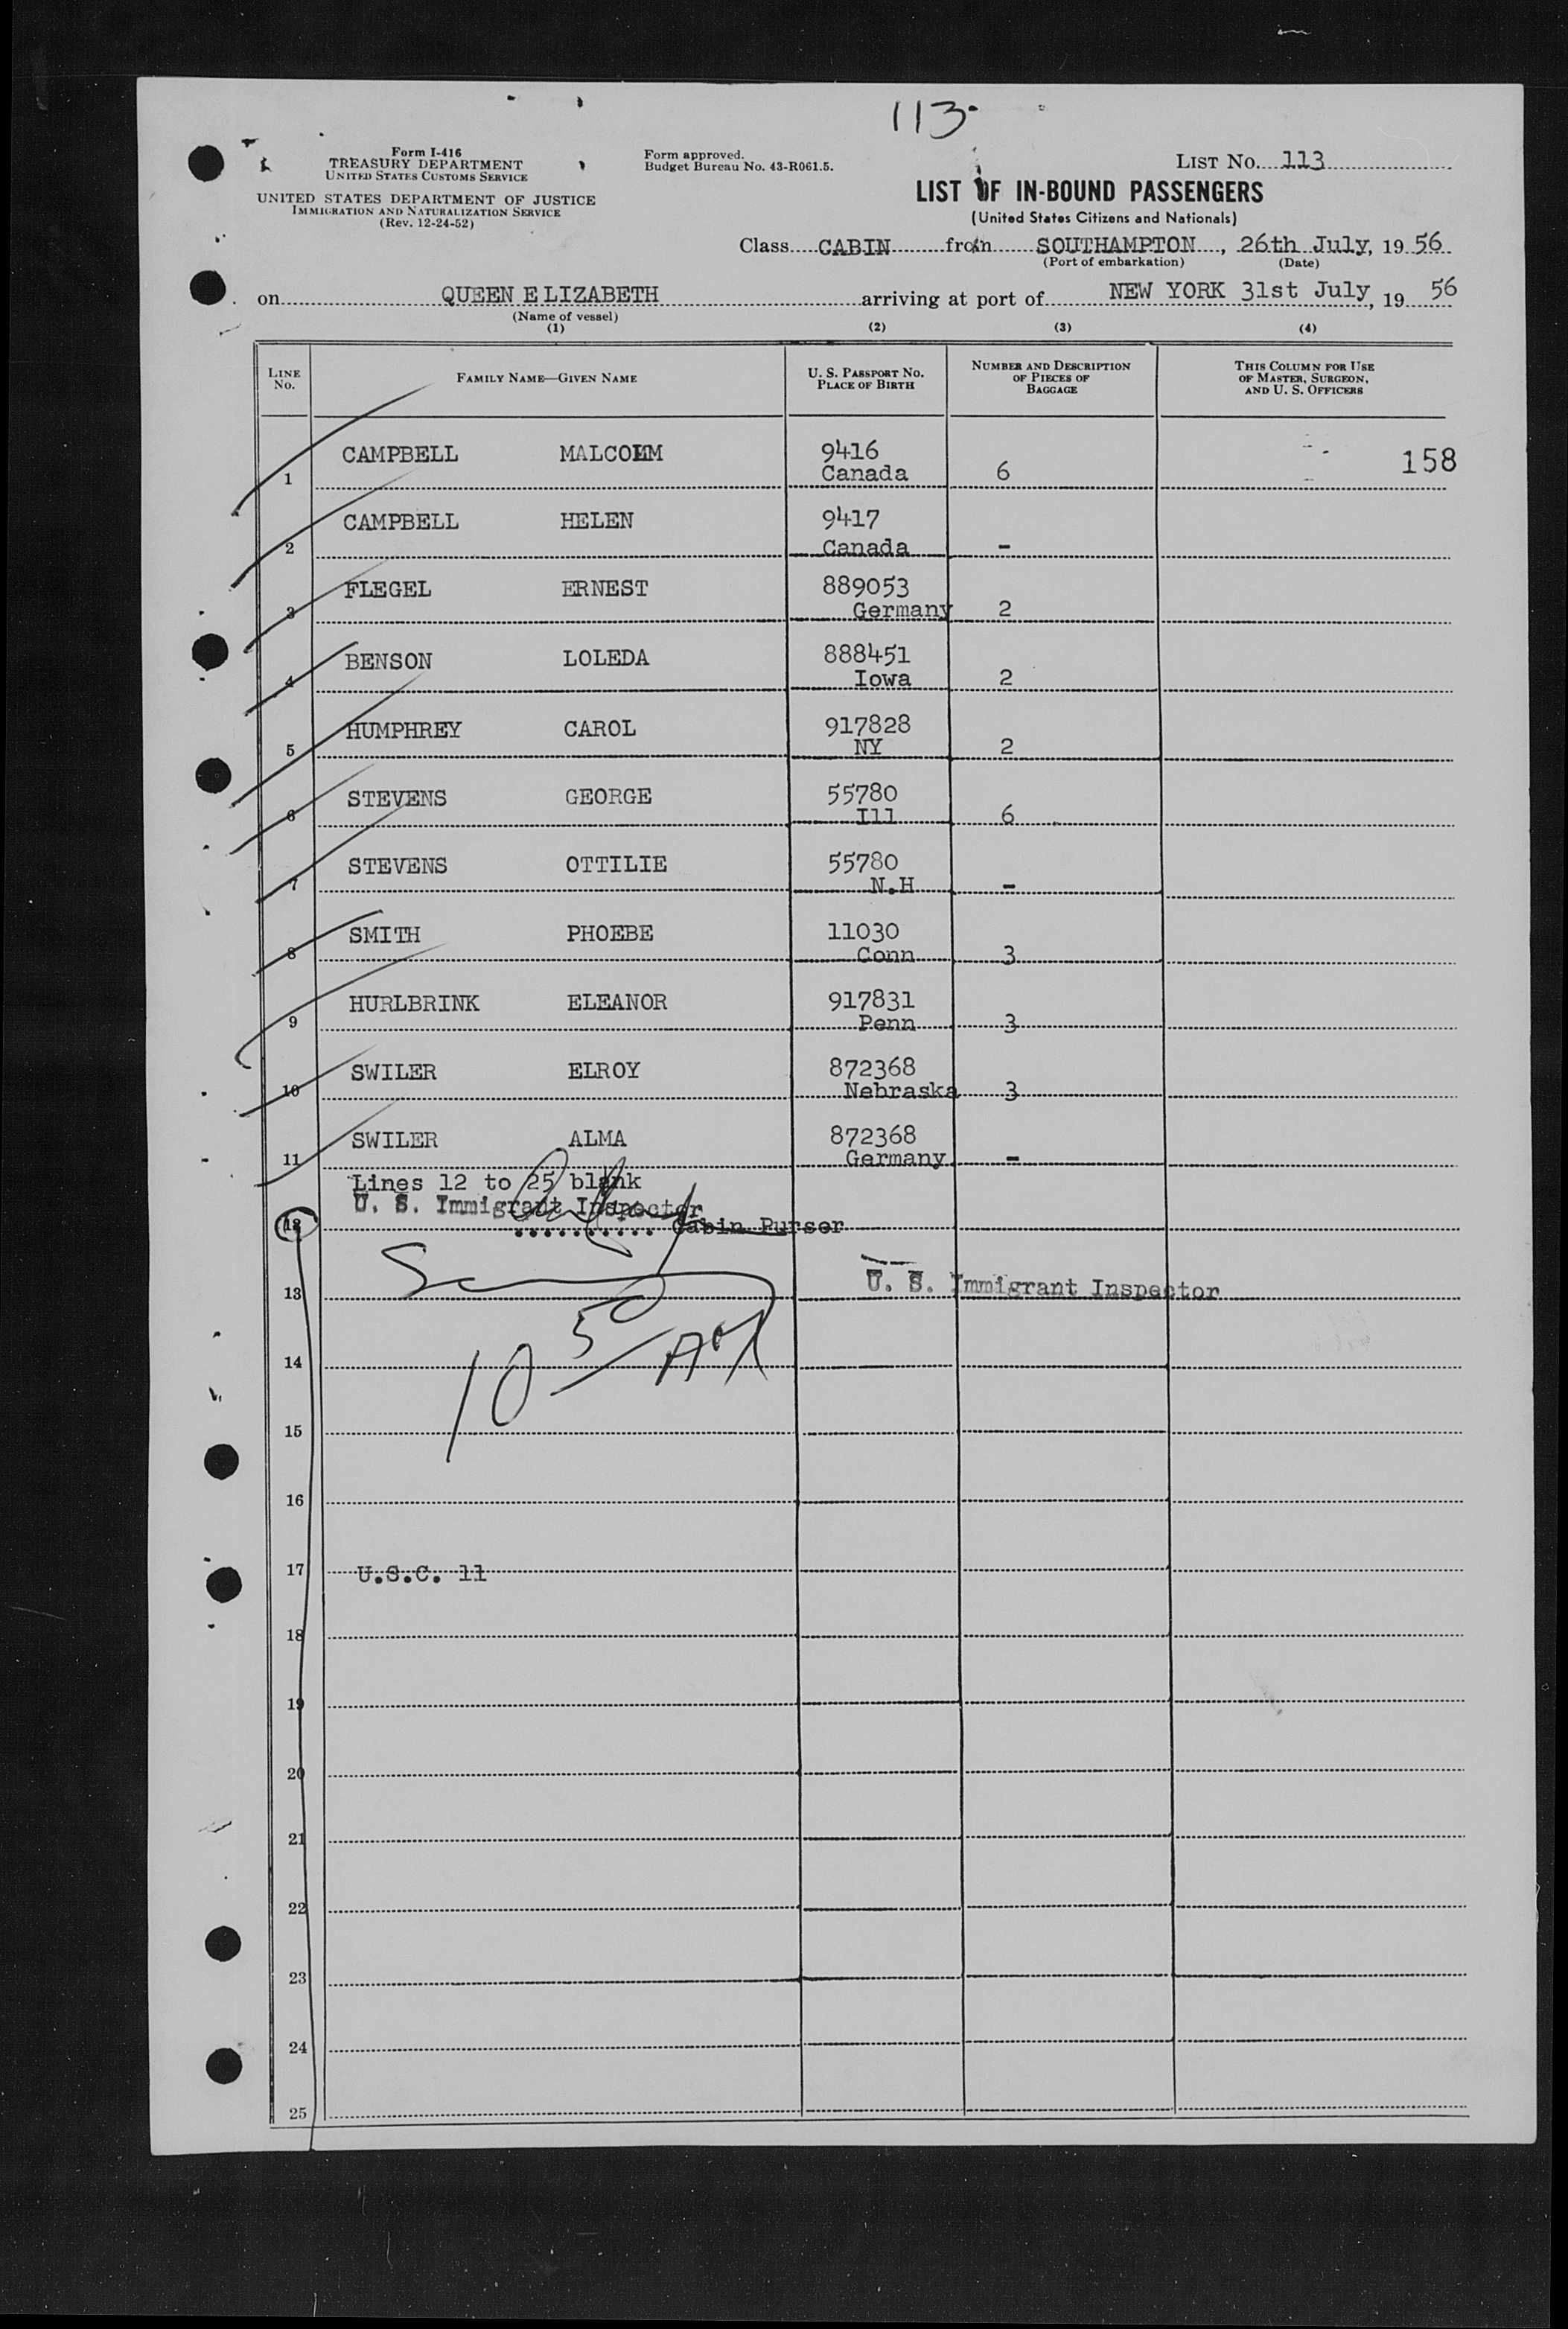 113
Form I-416
TREASURY DEPARTMENT
UNITED STATES CUSTOMS SERVICE
UNITED STATES DEPARTMENT OF JUSTICE
IMMIGRATION AND NATURALIZATION SERVICE
(Rev. 12-24-52)
Form approved.
Budget Bureau No. 43-R061.5.
LIST No. 113
LIST OF IN-BOUND PASSENGERS
(United States Citizens and Nationals)
Class CABIN from SOUTHAMPTON, 26th July, 1956
(Port of embarkation) (Date)
on QUEEN ELIZABETH arriving at port of NEW YORK 31st July, 19 56
(Name of vessel)
(1) (2) (3) (4)
LINE No. FAMILY NAME—GIVEN NAME U. S. PASSPORT No. PLACE OF BIRTH NUMBER AND DESCRIPTION OF PIECES OF BAGGAGE THIS COLUMN FOR USE OF MASTER, SURGEON, AND U. S. OFFICERS
1 CAMPBELL MALCOLM 9416 Canada 6 158
2 CAMPBELL HELEN 9417 Canada -
3 FLEGEL ERNEST 889053 Germany 2
4 BENSON LOLEDA 888451 Iowa 2
5 HUMPHREY CAROL 917828 NY 2
6 STEVENS GEORGE 55780 Ill 6
7 STEVENS OTTILIE 55780 N.H -
8 SMITH PHOEBE 11030 Conn 3
9 HURLBRINK ELEANOR 917831 Penn 3
10 SWILER ELROY 872368 Nebraska 3
11 SWILER ALMA 872368 Germany -
Lines 12 to 25 blank
U. S. Immigrant Inspector
12 .......... Cabin Purser
13 U. S. Immigrant Inspector
10 50 AM
14
15
16
17 U.S.C. 11
18
19
20
21
22
23
24
25